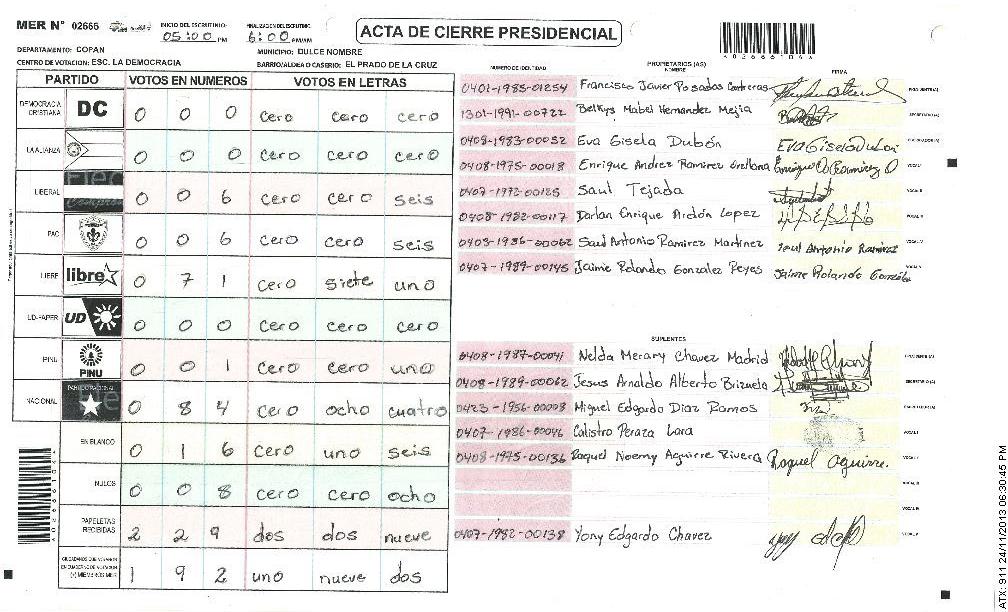 MER N° 02666
INICIO DEL ESCRUTINIO: 05:00 PM
FINALIZACION DEL ESCRUTINIO: 6:00 PM/AM
ACTA DE CIERRE PRESIDENCIAL
DEPARTAMENTO: COPAN
MUNICIPIO: DULCE NOMBRE
CENTRO DE VOTACION: ESC. LA DEMOCRACIA
BARRIO/ALDEA O CASERIO: EL PRADO DE LA CRUZ
PARTIDO VOTOS EN NUMEROS VOTOS EN LETRAS
DEMOCRACIA CRISTIANA DC 0 0 0 cero cero cero
LA ALIANZA 0 0 0 cero cero cero
LIBERAL 0 0 6 cero cero seis
PAC 0 0 6 cero cero seis
LIBRE libre 0 7 1 cero siete uno
UD-FAPER UD 0 0 0 cero cero cero
PINU PINU 0 0 1 cero cero uno
NACIONAL 0 8 4 cero ocho cuatro
EN BLANCO 0 1 6 cero uno seis
NULOS 0 0 8 cero cero ocho
PAPELETAS RECIBIDAS 2 2 9 dos dos nueve
CIUDADANOS QUE VOTARON EN CUADERNO DE VOTACION (+) MIEMBROS MER 1 9 2 uno nueve dos
PROPIETARIOS (AS)
NUMERO DE IDENTIDAD NOMBRE FIRMA
0401-1985-01254 Francisco Javier Posados Contreras
1301-1991-00722 Belkys Mabel Hernandez Mejia
0408-1983-00052 Eva Gisela Dubón Eva Gisela Dubon
0408-1975-00018 Enrique Andres Ramirez Orellana
0407-1972-00125 Saul Tejada
0408-1982-00117 Darlan Enrique Ardón Lopez
0403-1986-00062 Saul Antonio Ramirez Martinez Saul Antonio Ramirez
0407-1989-00145 Jaime Rolando Gonzalez Reyes Jaime Rolando Gonzalez
SUPLENTES
0408-1987-00041 Nelda Merary Chavez Madrid
0408-1989-00062 Jesus Arnaldo Alberto Brizuela
0423-1956-00008 Miguel Edgardo Diaz Ramos
0407-1986-00046 Calistro Peraza Lara
0408-1975-00136 Raquel Noemy Aguirre Rivera Raquel Aguirre.
0407-1982-00138 Yony Edgardo Chavez
ATX: 911 24/11/2013 06:30:45 PM